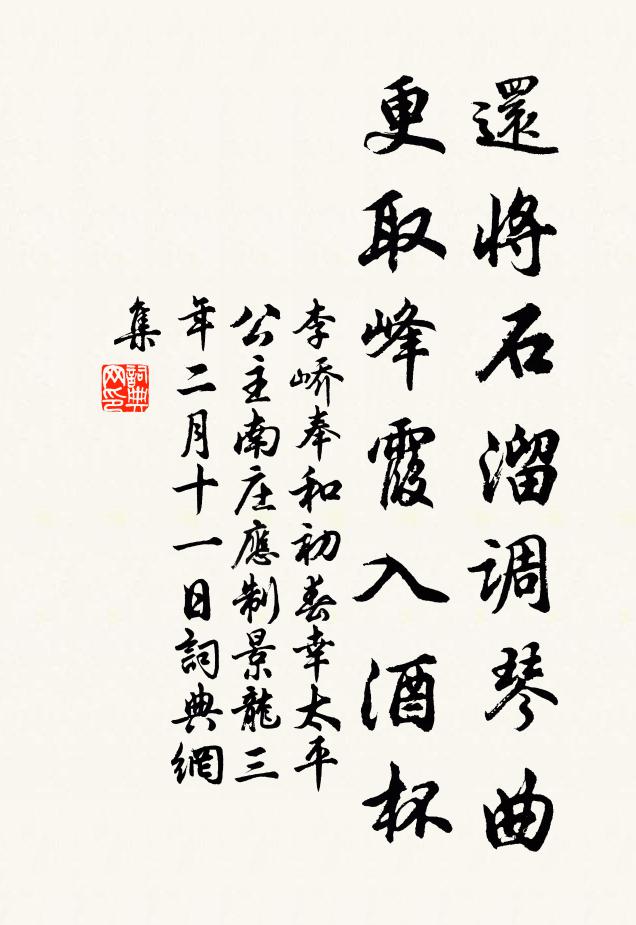 還將石溜調琴曲
更取峰霞入酒杯
李嶠奉和初春幸太平
公主南庄應制景龍三
年二月十一日詞典網
集
詞典
网印